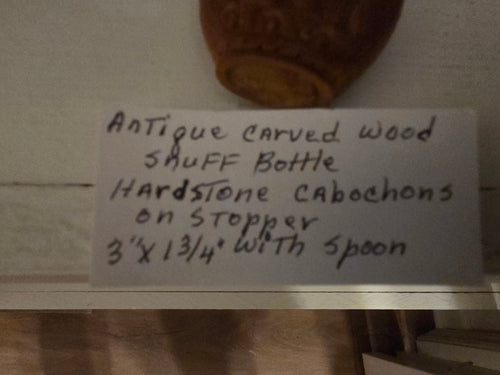 Antique carved wood
snuff Bottle
Hardstone cabochons
on stopper
3"x 1 3/4" with spoon